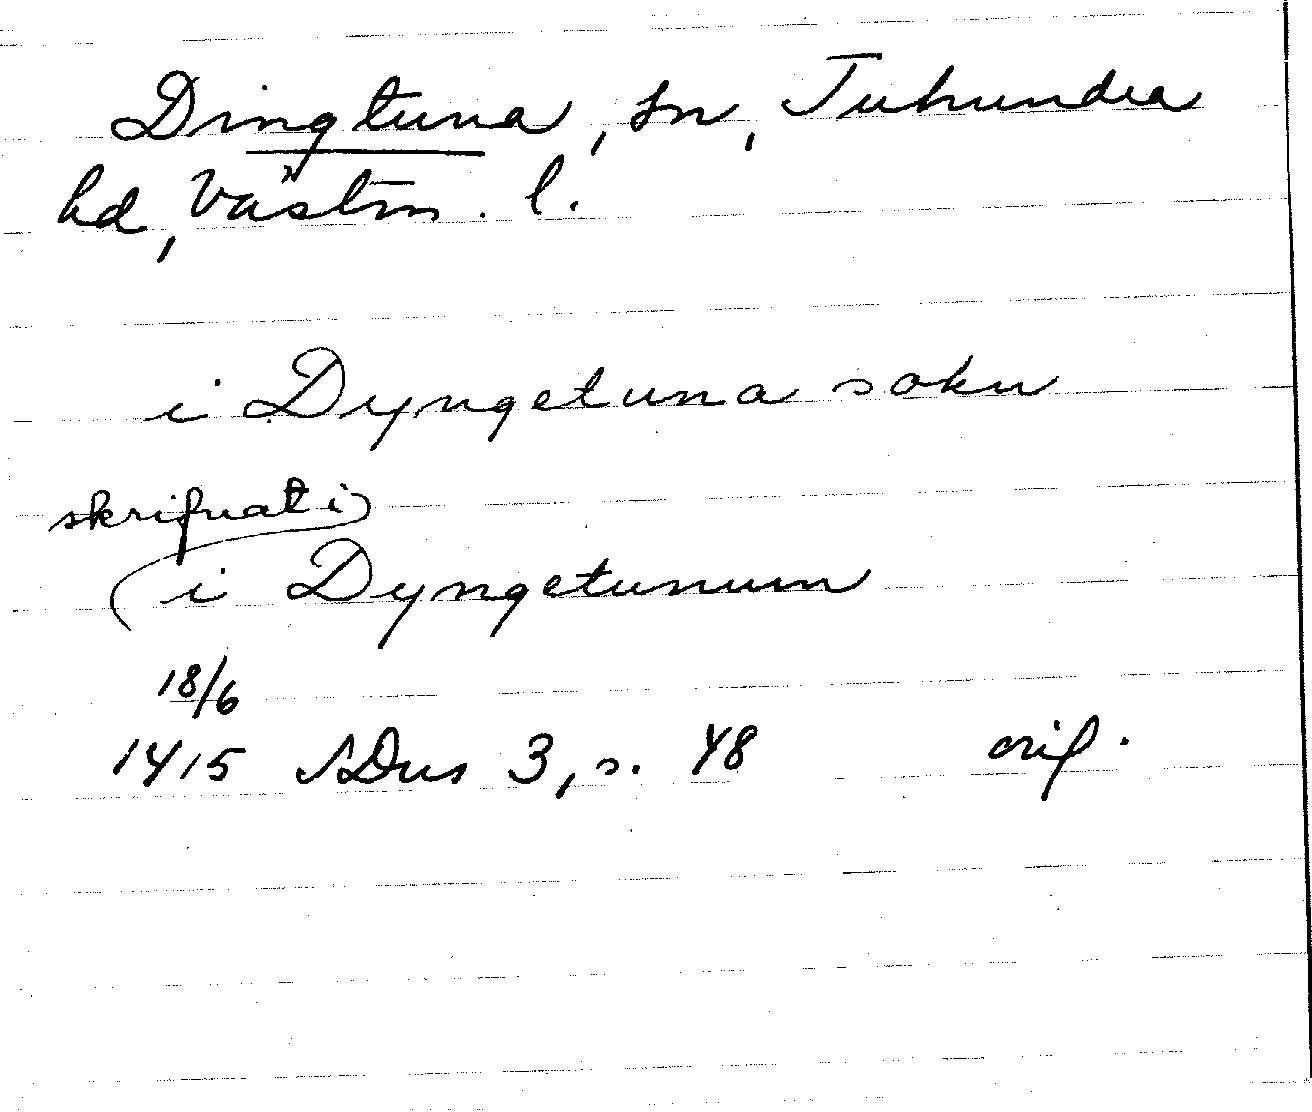 Dingtuna, sn, Tuhundra
hd, Västm. l.
i Dyngetuna sokn
skrifuat i
i Dyngetunum
18/6
1415 SDns 3, s. 48 orig.